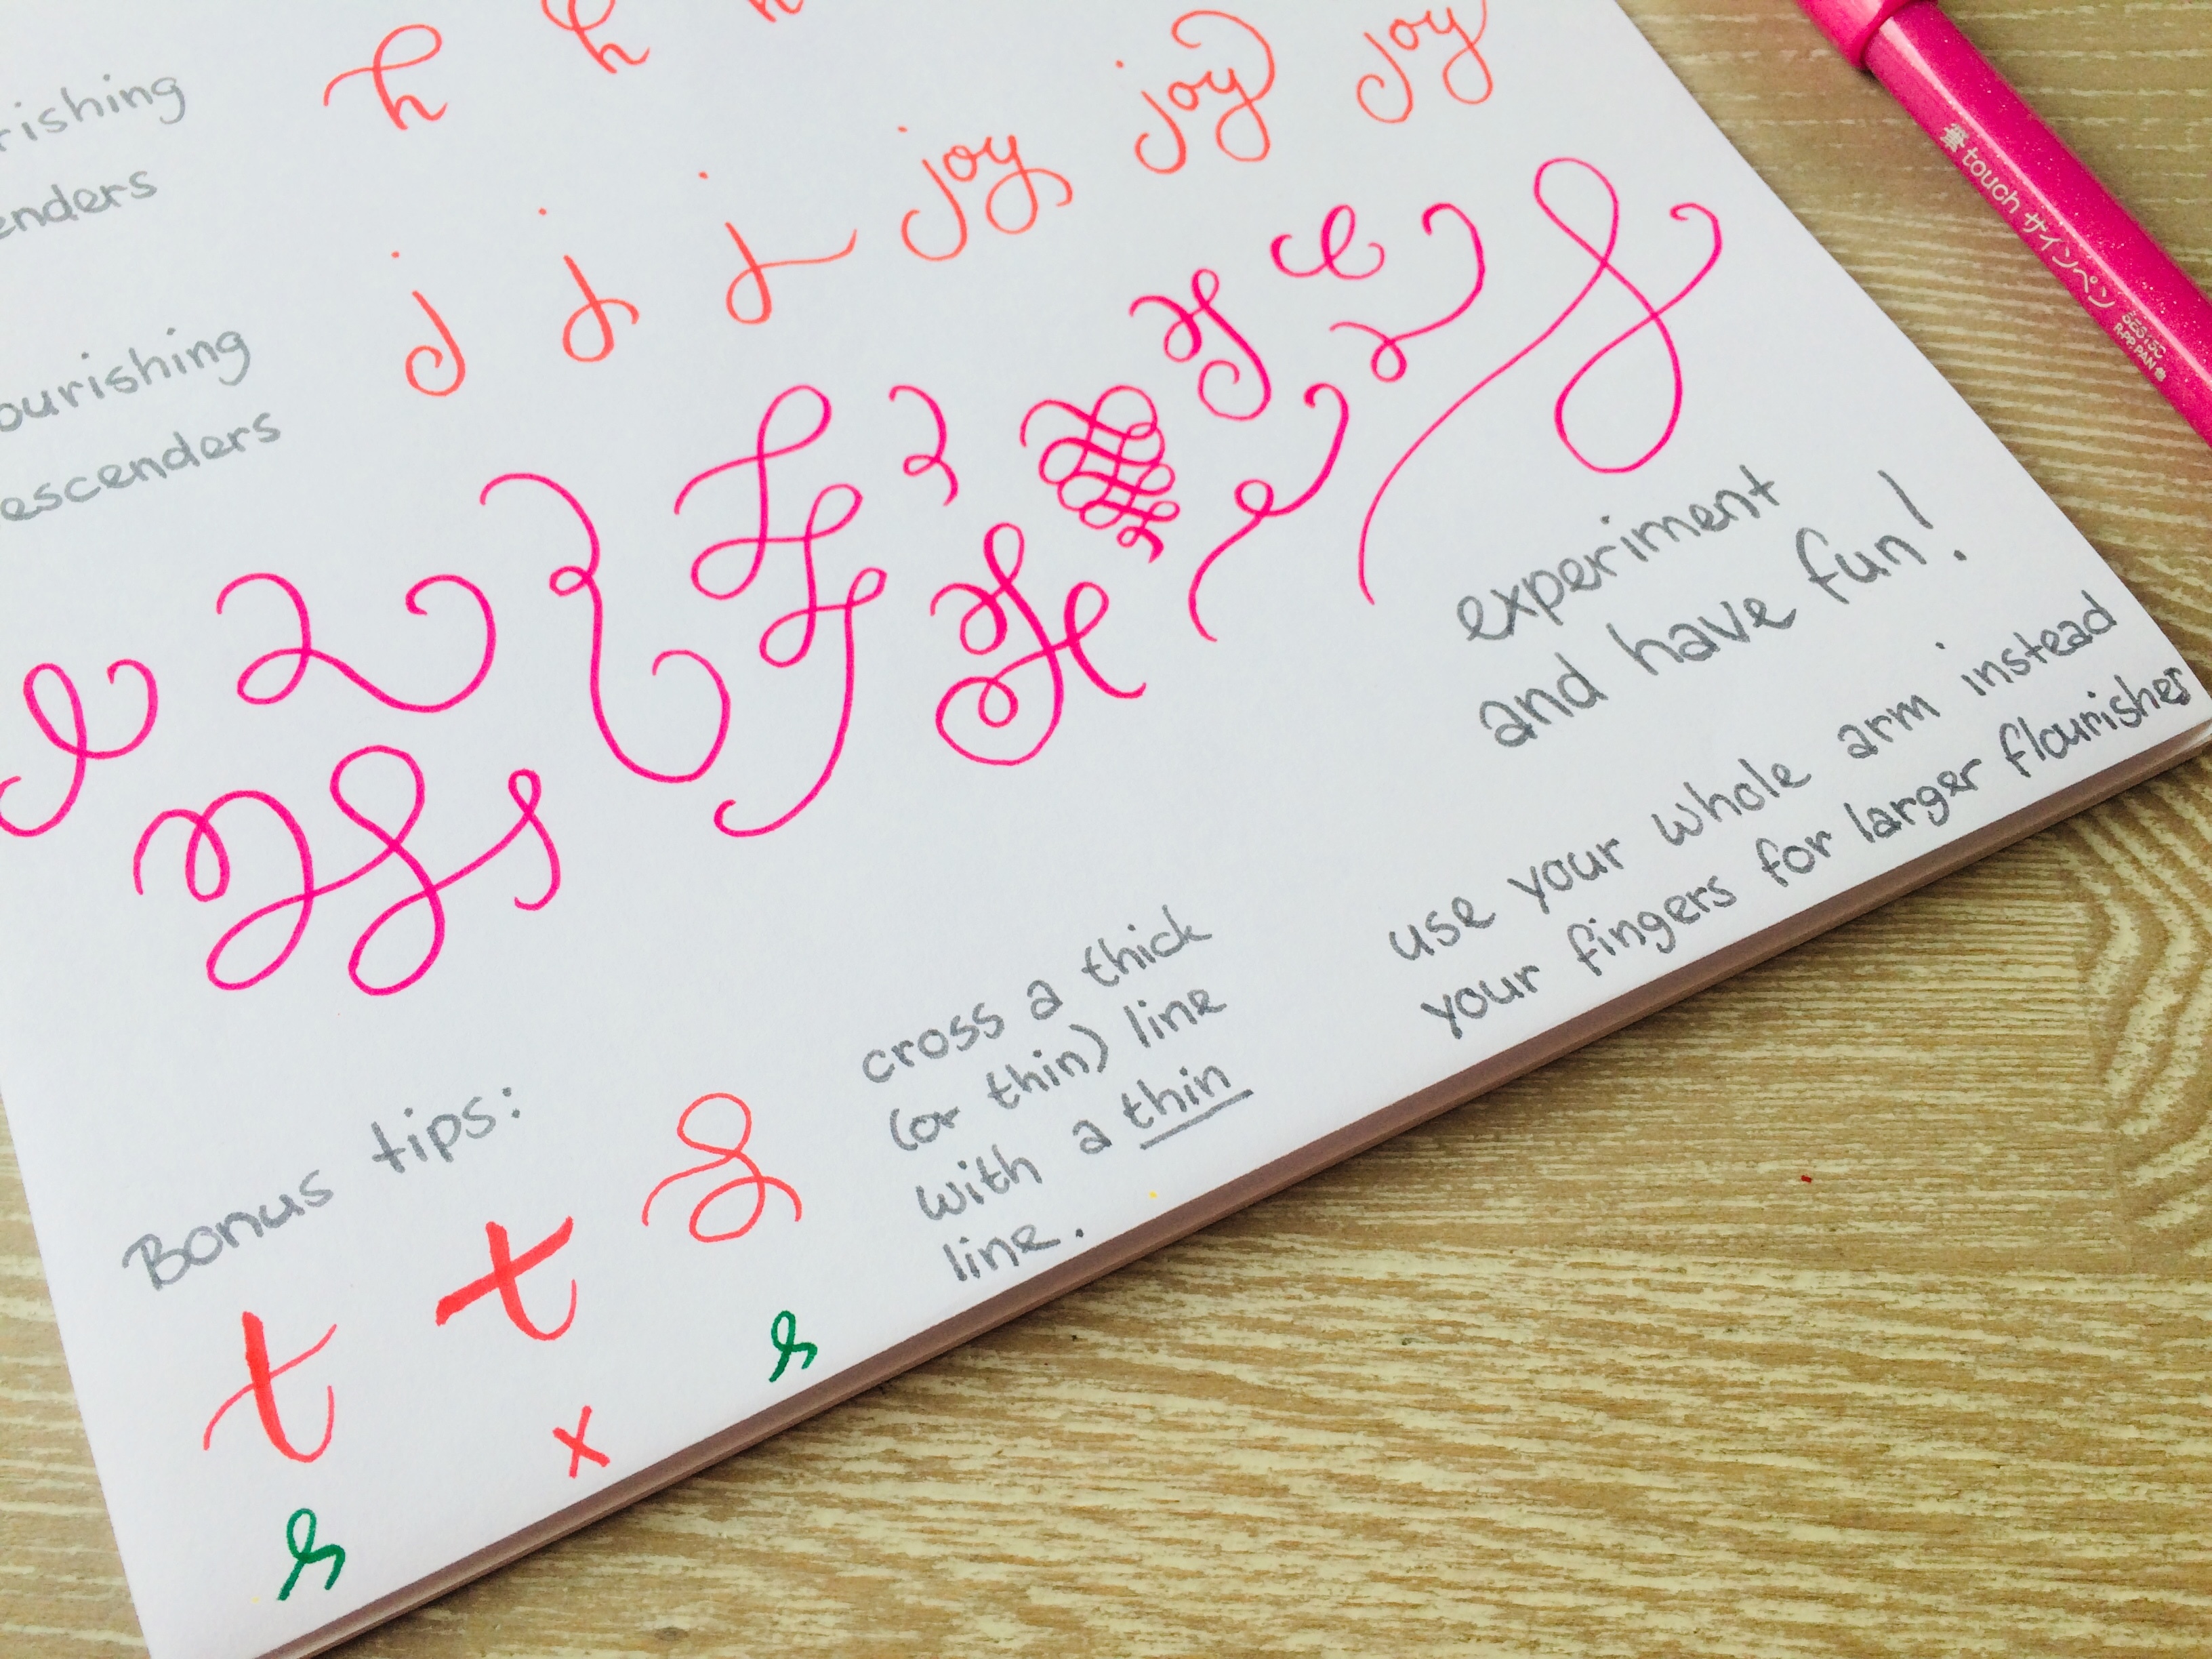 h h h
rishing
enders
j j j joy joy joy
ourishing
escenders
experiment
and have fun!
use your whole arm instead
your fingers for larger flourishes
Bonus tips:
t t
x
cross a thick
(or thin) line
with a thin
line.
筆touch サインペン
SES15C